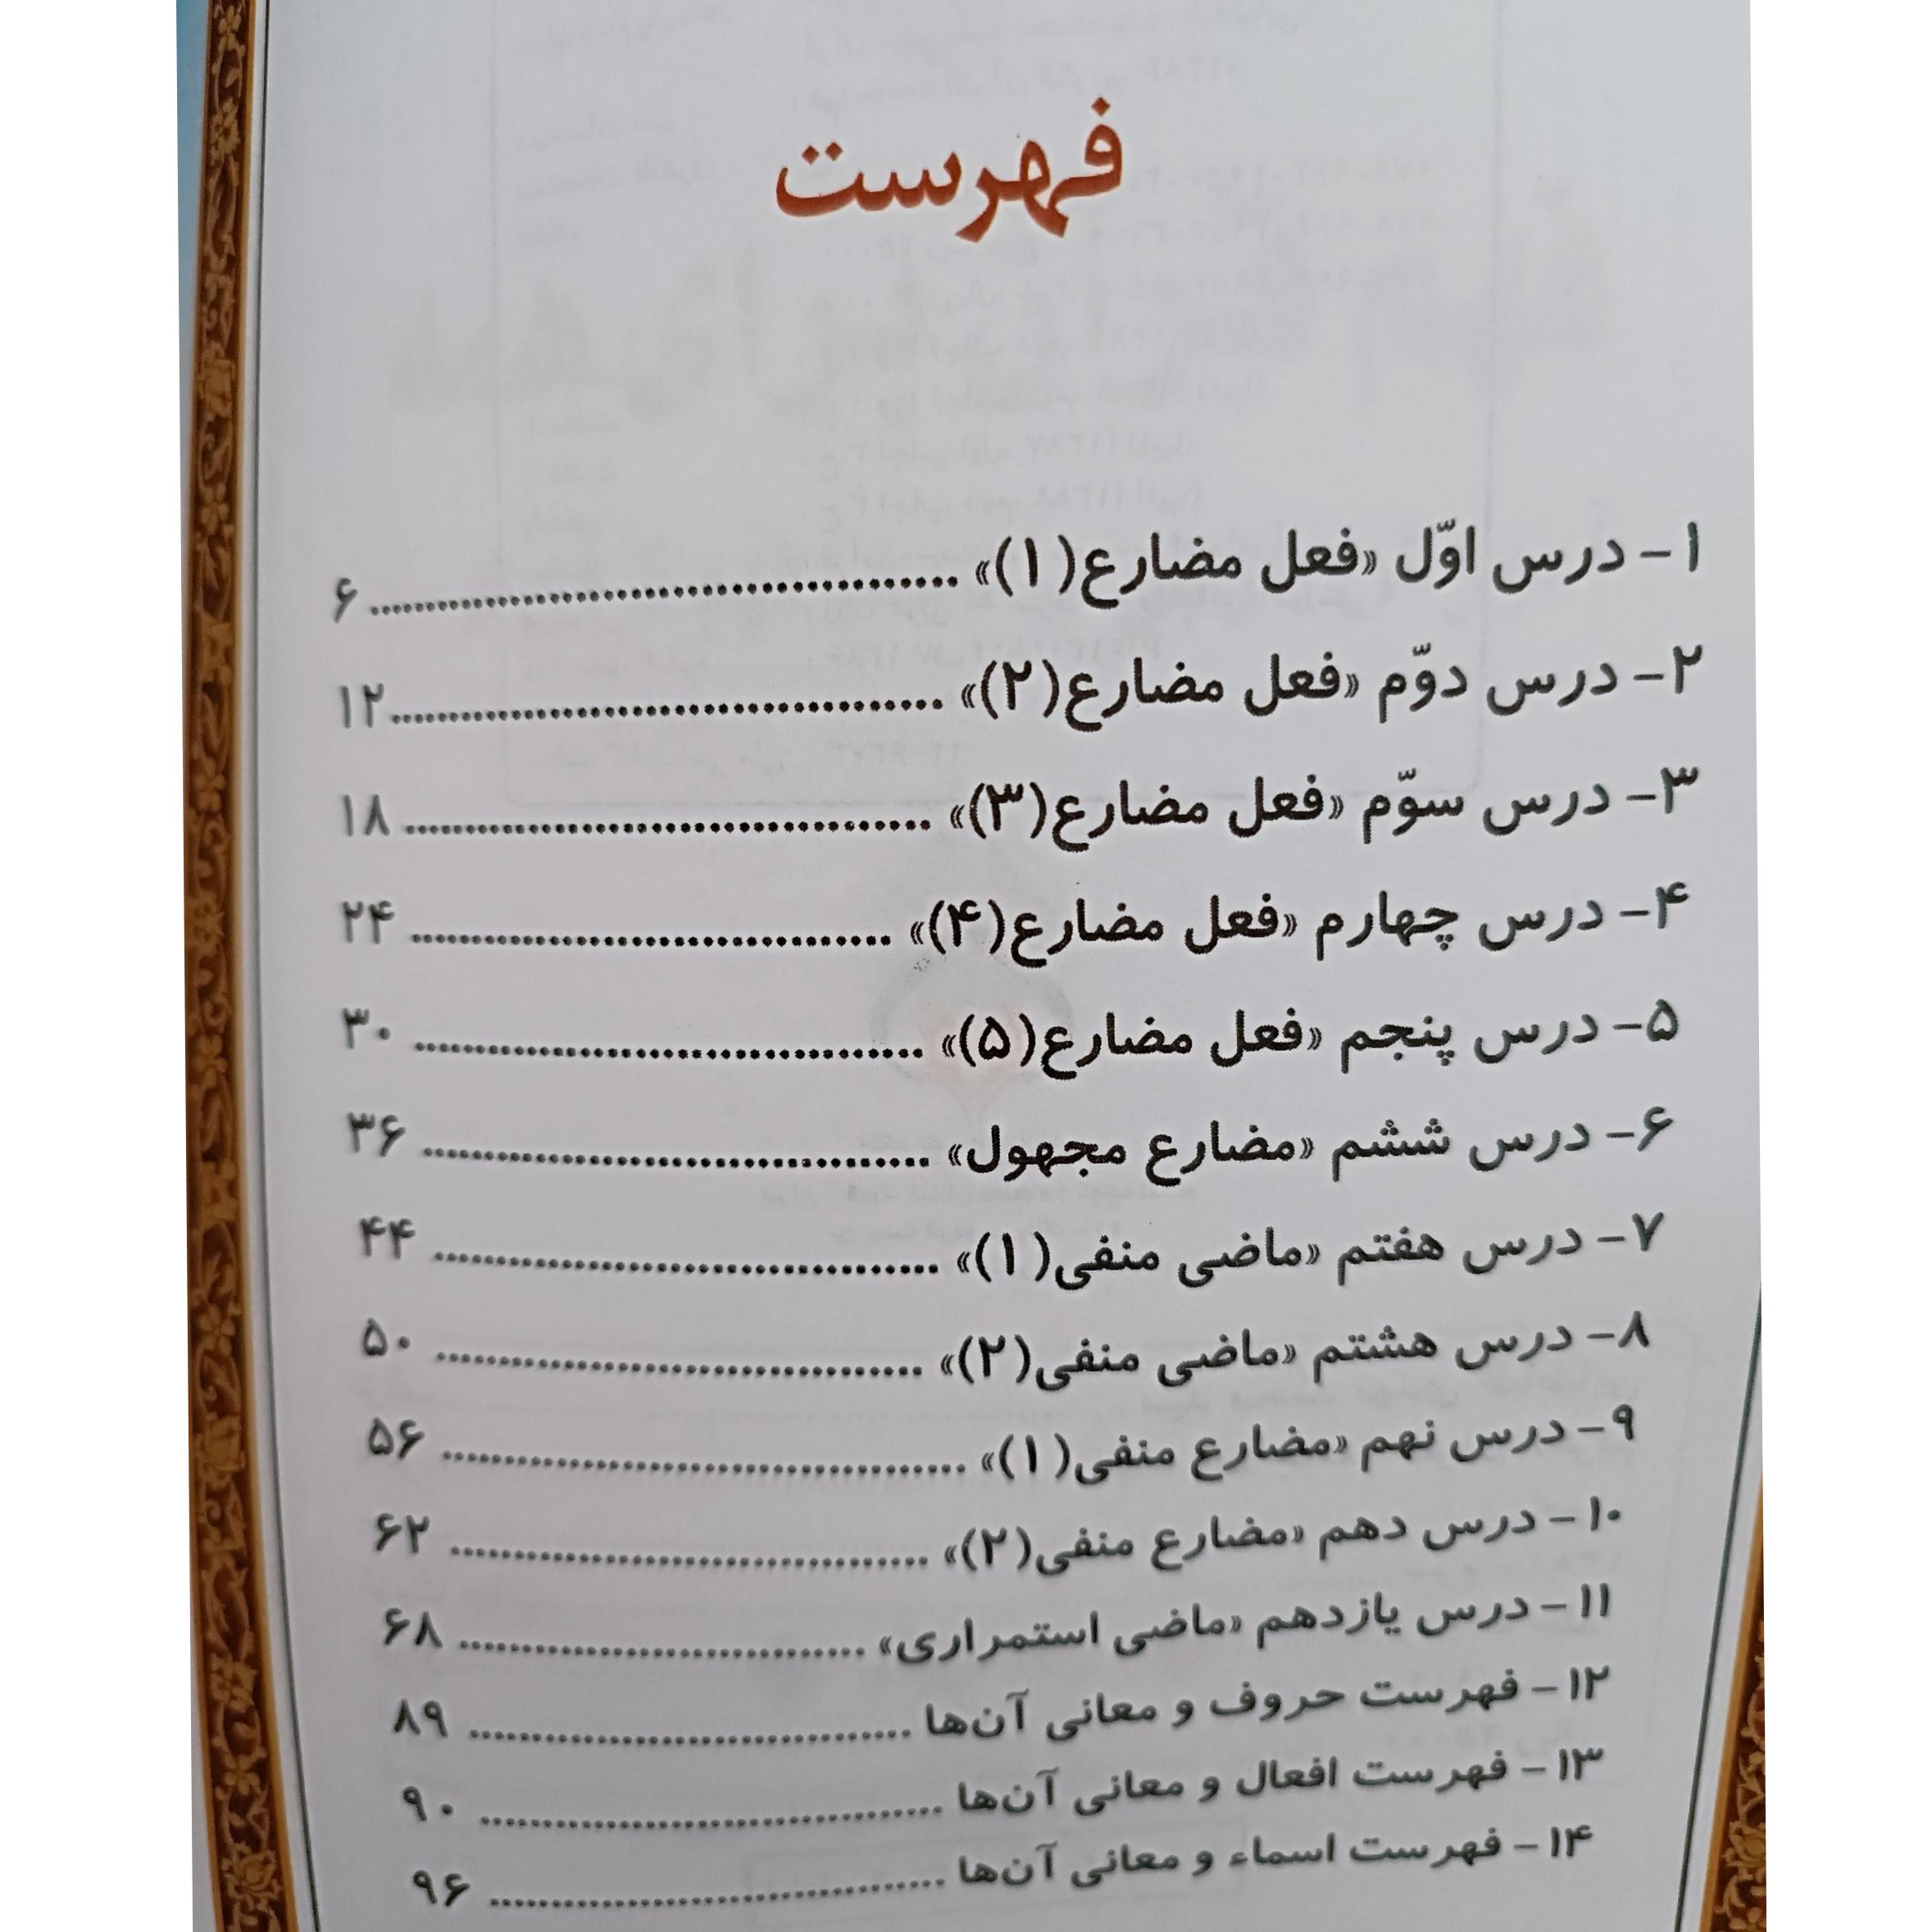 فهرست
۱- درس اوّل «فعل مضارع(۱)» ........................................ ۶
۲- درس دوّم «فعل مضارع(۲)» ........................................ ۱۲
۳- درس سوّم «فعل مضارع(۳)» ........................................ ۱۸
۴- درس چهارم «فعل مضارع(۴)» ........................................ ۲۴
۵- درس پنجم «فعل مضارع(۵)» ........................................ ۳۰
۶- درس ششم «مضارع مجهول» ........................................ ۳۶
۷- درس هفتم «ماضی منفی(۱)» ........................................ ۴۴
۸- درس هشتم «ماضی منفی(۲)» ........................................ ۵۰
۹- درس نهم «مضارع منفی(۱)» ........................................ ۵۶
۱۰- درس دهم «مضارع منفی(۲)» ........................................ ۶۲
۱۱- درس یازدهم «ماضی استمراری» ........................................ ۶۸
۱۲- فهرست حروف و معانی آن‌ها ........................................ ۸۹
۱۳- فهرست افعال و معانی آن‌ها ........................................ ۹۰
۱۴- فهرست اسماء و معانی آن‌ها ........................................ ۹۶